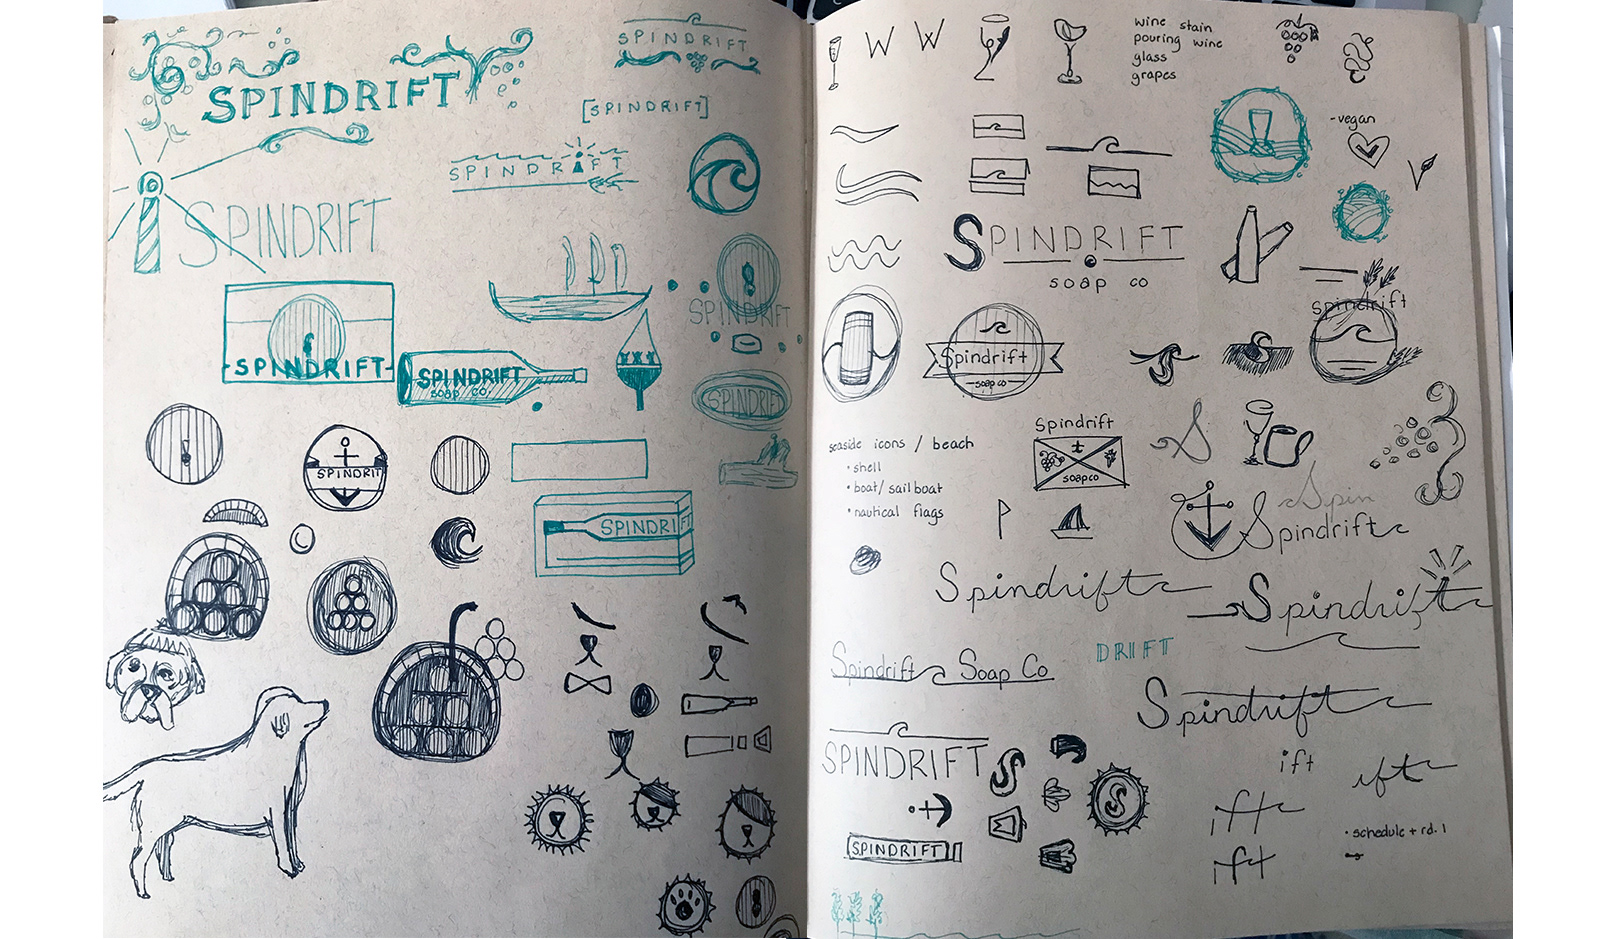 SPINDRIFT
SPINDRIFT
[SPINDRIFT]
SPINDRIFT
SPINDRIFT
SPINDRIFT
-SPINDRIFT-
SPINDRIFT
soap co
SPINDRIFT
SPINDRIFT
SPINDRIFT
W W
wine stain
pouring wine
glass
grapes
-vegan
SPINDRIFT
soap co
spindrift
Spindrift
-soap co-
Spindrift
soap co
seaside icons / beach
• shell
• boat/sailboat
• nautical flags
S
Spin
Spindrift
Spindrift
Spindrift
DRIFT
Spindrift Soap Co
Spindrift
SPINDRIFT
S
S
ift
ift
ift
ift
• schedule + rd. 1
SPINDRIFT